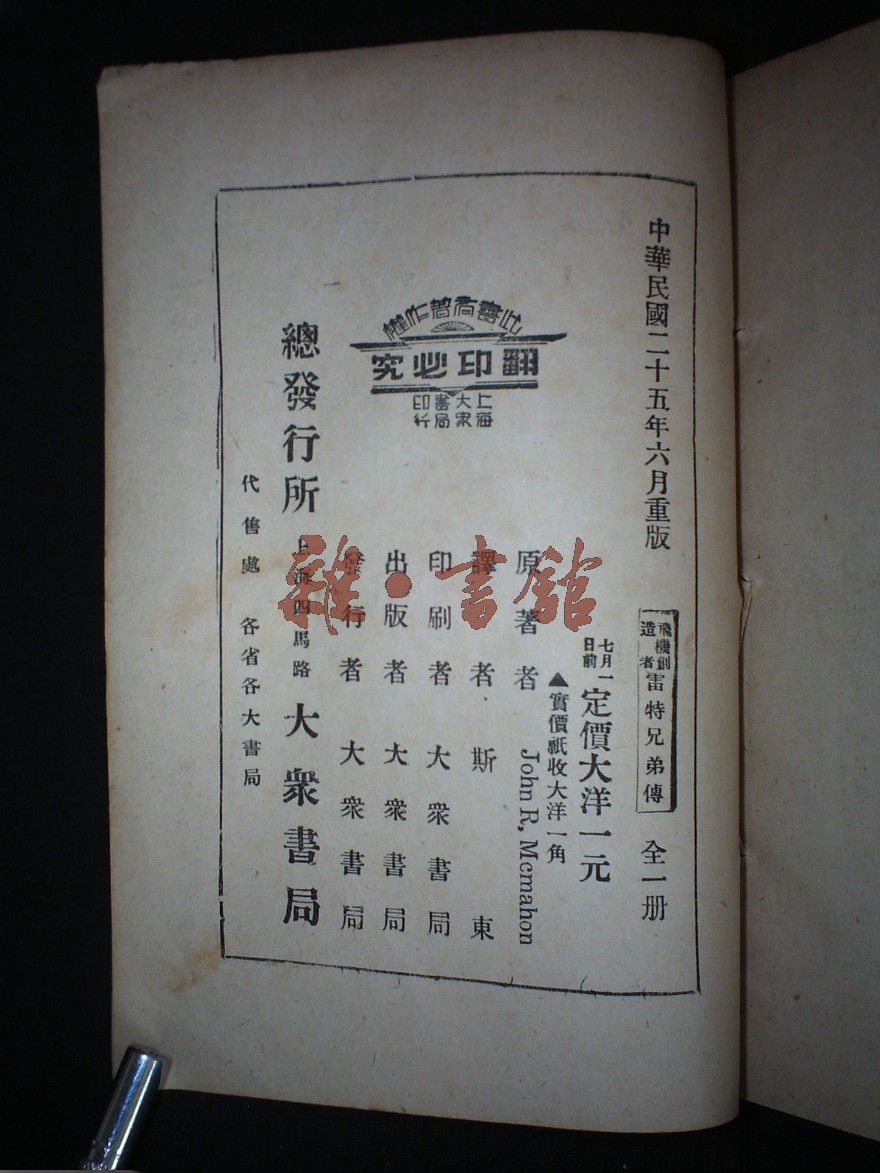 中華民國二十五年六月重版
飛機創造者 雷特兄弟傳 全一册
七月一日前 定價大洋一元
▲實價祇收大洋一角
原著者 John R, Mcmahon
譯者 斯東
印刷者 大衆書局
出版者 大衆書局
發行者 大衆書局
此書有著作權
翻印必究
上海
大衆
書局
印行
總發行所 上海四馬路 大衆書局
代售處 各省各大書局
雜·書館